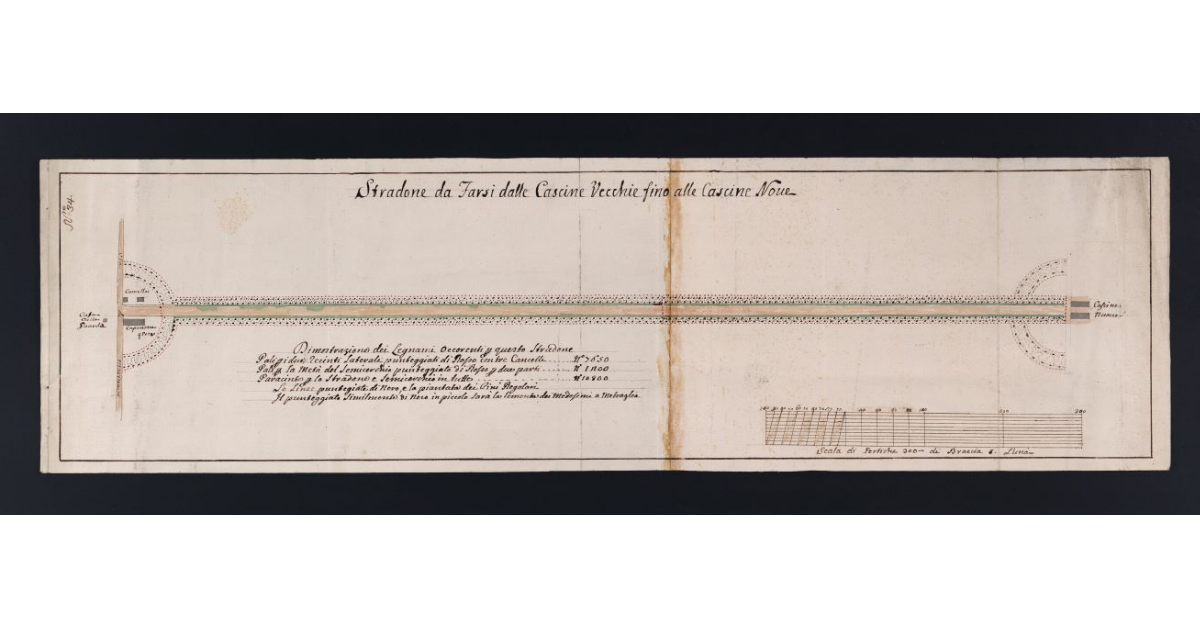 Stradone da Farsi dalle Cascine Vecchie fino alle Cascine Nove
N.º 34.
Dimostrazione dei Legnami Occorenti p questo Stradone
Pali pi due Recinti Laterali punteggiati di Rosso entre Cancelli N.º 7650
Pali p la Metà del Semicerchio punteggiato di Rosso, p due parti N.º 1200
Paracinto p lo Stradone e Semicerchio in tutto N.º 10800
Le Linee puntegiate di Nero, e la piantata dei Pini Regolari
Il punteggiato Similmente di Nero in piccolo sara la Sementa dei Medesimi a
Cascine
Nuove
Scala di Pertiche 200 di Braccia 5. L'una